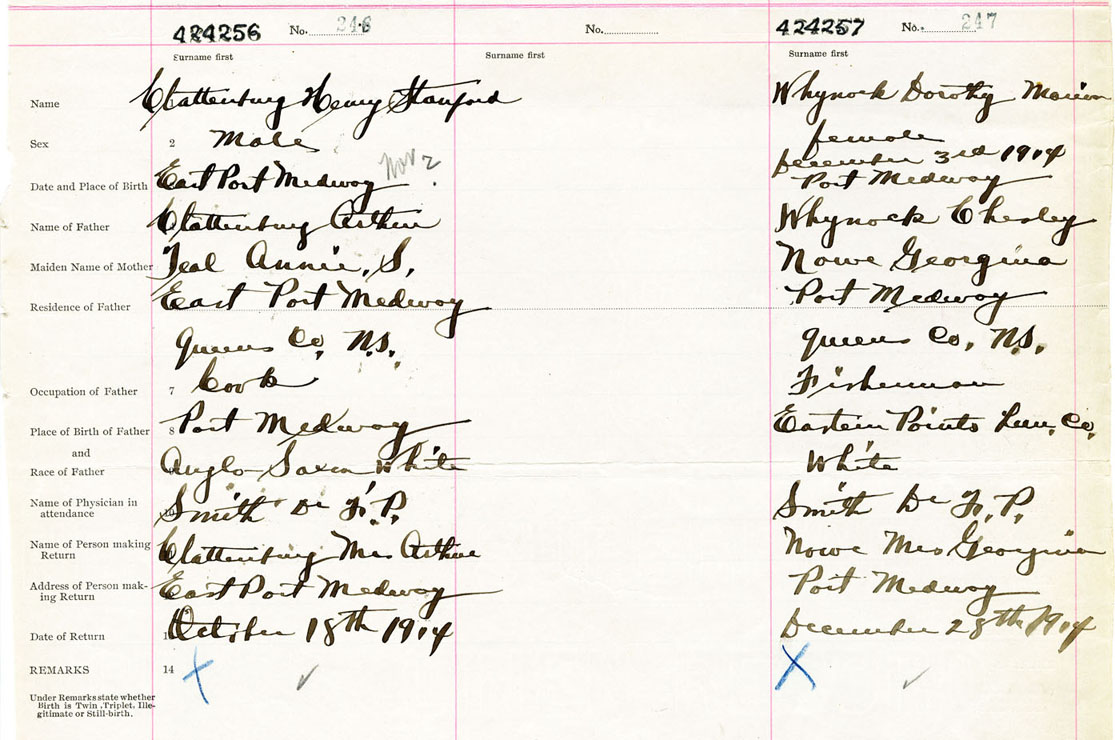 424256 No. 246 No. 424257 No. 247
Surname first Surname first Surname first
Name Clattenburg Henry Stanford Whynock Dorothy Marion
Sex 2 Male female
Nov 2 December 3rd 1914
Date and Place of Birth East Port Medway Port Medway
Name of Father Clattenburg Arthur Whynock Chesley
Maiden Name of Mother Teal Annie, S. Nowe Georgina
Residence of Father East Port Medway Port Medway
Queens Co, N.S. Queens Co, N.S.
Occupation of Father 7 Cook Fisherman
Place of Birth of Father 8 Port Medway Eastern Points Lun, Co,
and
Race of Father Anglo Saxon White White
Name of Physician in
attendance 10 Smith Dr F. P. Smith Dr F. P.
Name of Person making
Return Clattenburg Mrs Arthur Nowe Mrs Georgina
Address of Person mak-
ing Return East Port Medway Port Medway
Date of Return 1 October 18th 1914 December 28th 1914
REMARKS 14 X ✓ X ✓
Under Remarks state whether
Birth is Twin, Triplet, Ille-
gitimate or Still-birth.